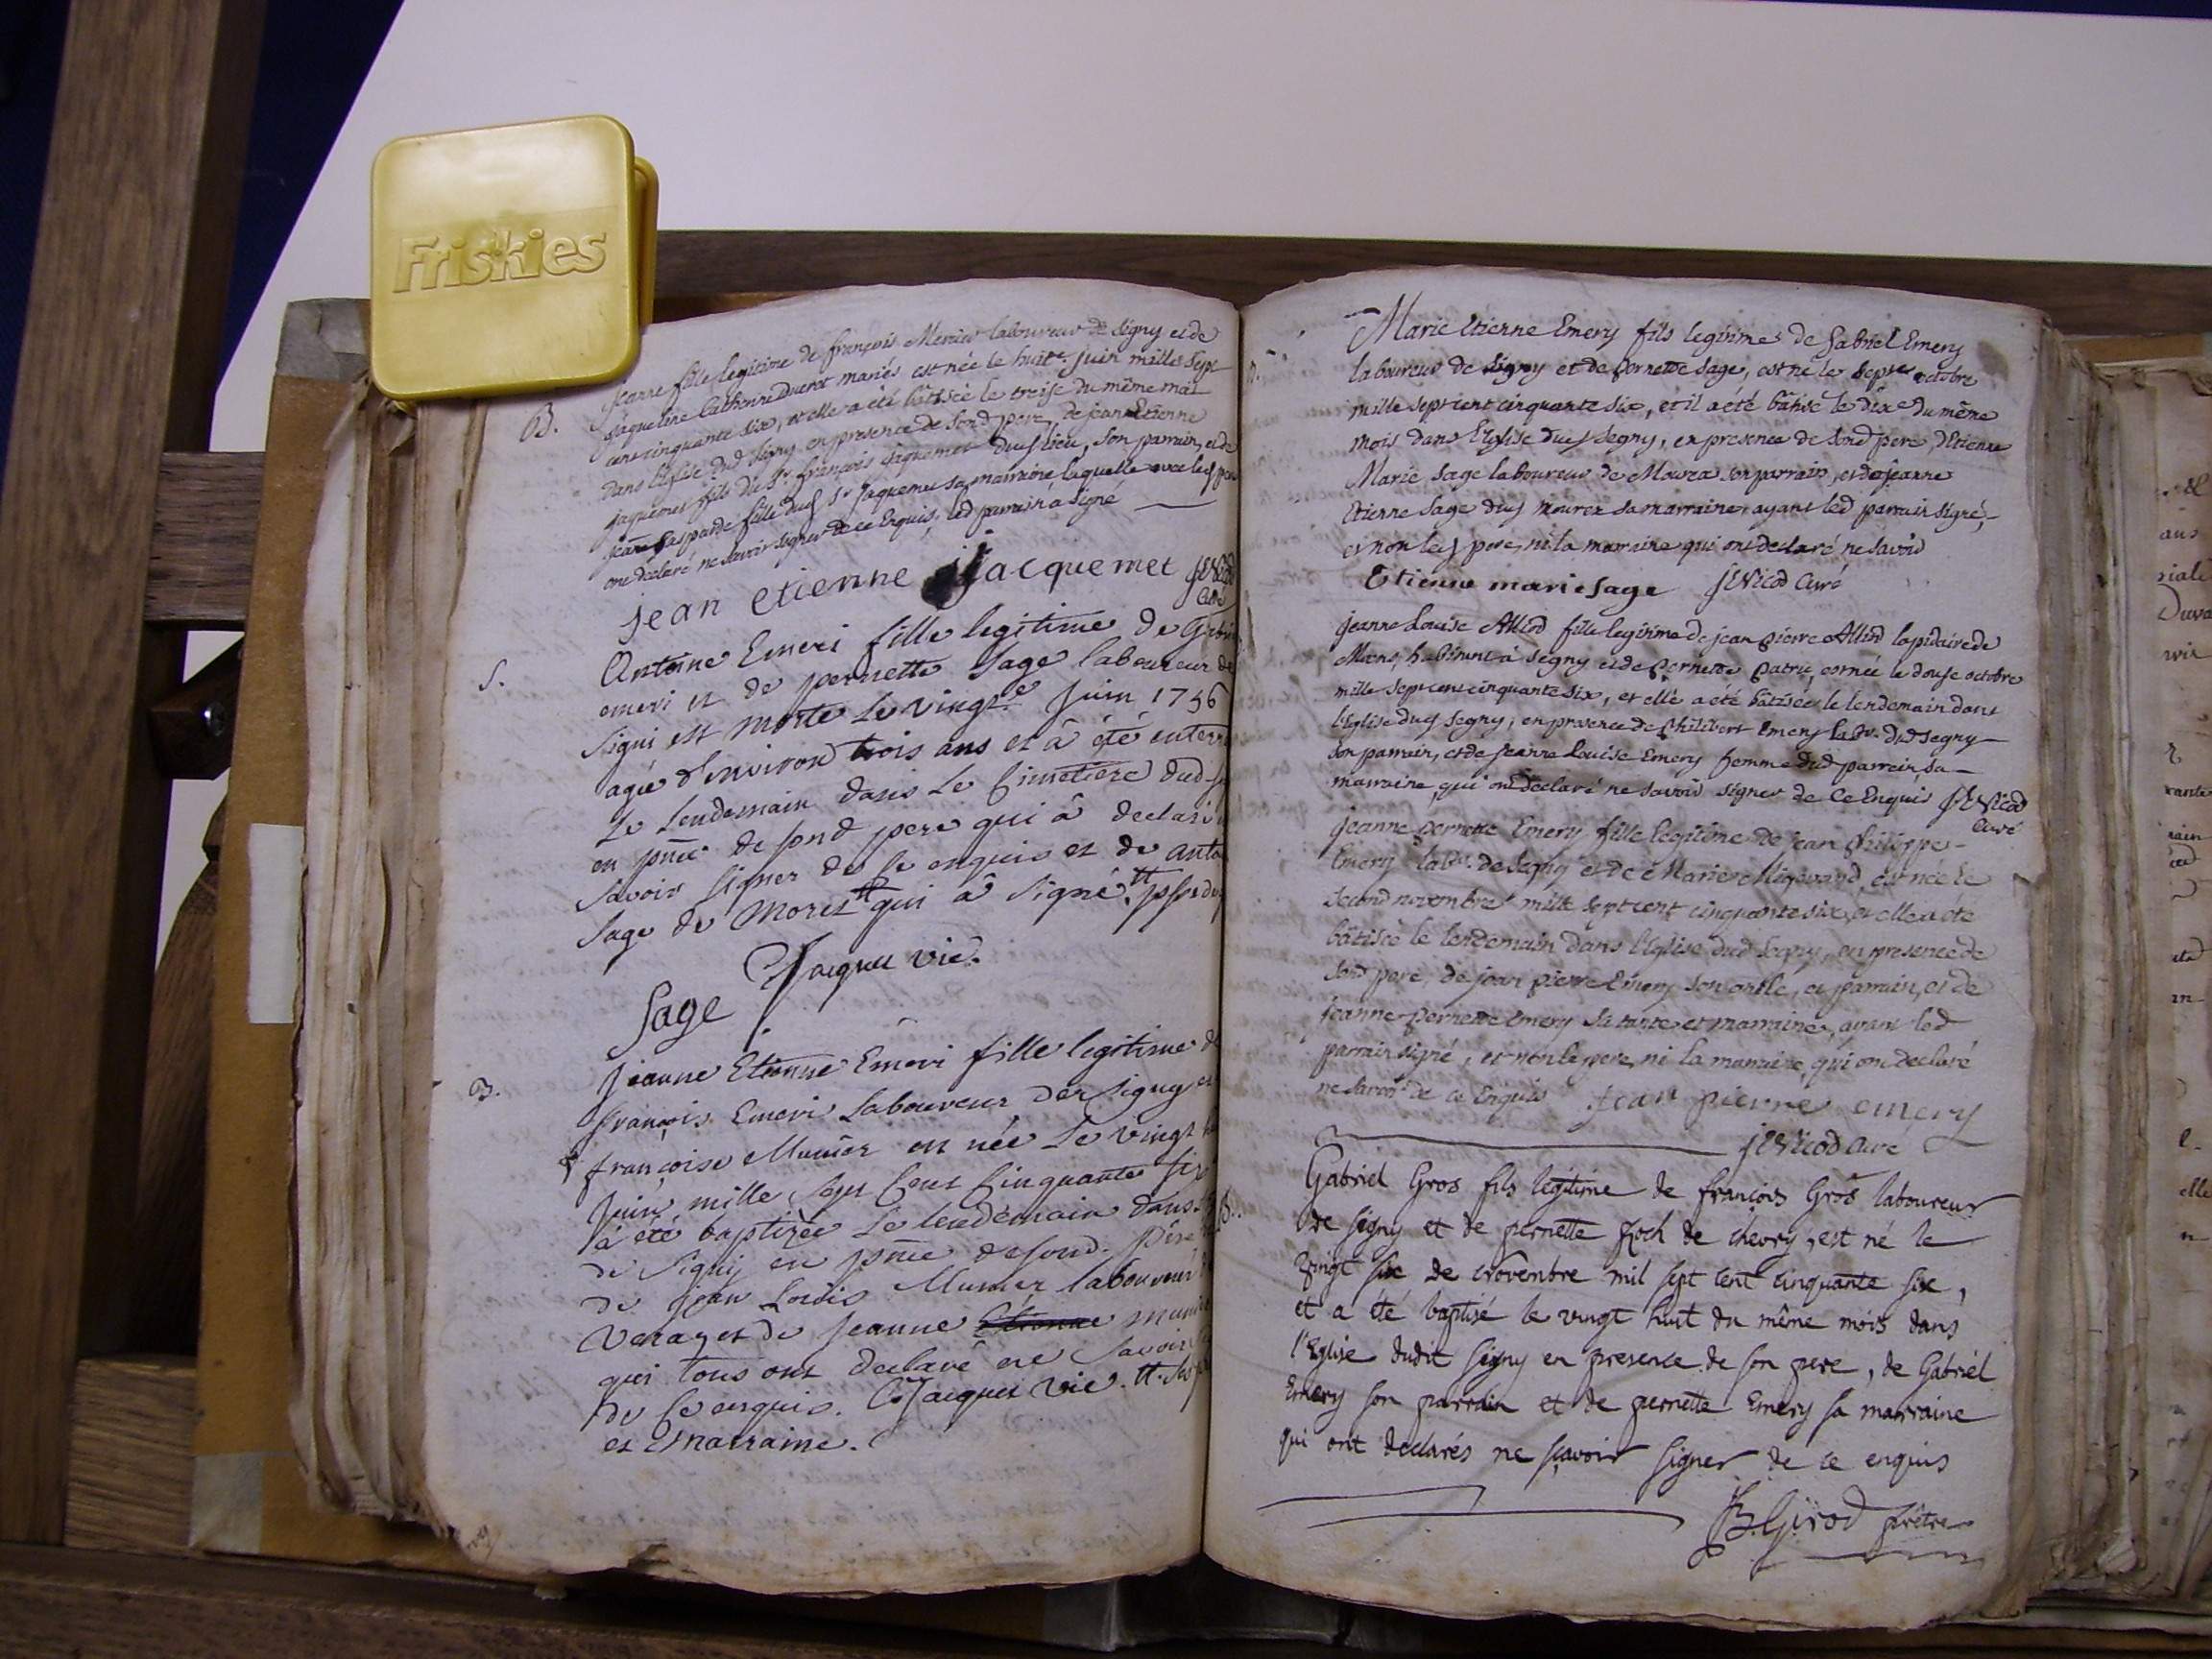 Friskies
B.
Jeanne fille legitime de françois Munier laboureur de Segny et de
jaqueline Catherine Ducret mariés est née le huite juin mille sept
cent cinquante six, et elle a été bâtisée le treise du même mois
dans l'Eglise dud Segny en presence de sond pere, de jean Etienne
jaquemet fils du Sr. françois jaquemet dud lieu, son parrain, et de
jeanne Gasparde fille dud Sr jaquemet sa marraine laquelle avec led pere
ont declaré ne savoir signer de ce Enquis, led parrain a signé
jean etienne jacquemet JENicod
Curé
S.
Antoine Emeri fille legitime de Gabriel
emeri et de pernette Sage laboureur de
Signi est morte le vingte Juin 1756
agée d'environ trois ans et â été enterr
le lendemain dans le Cimetiere dud
en pnce de sond pere qui â declaré
savoir signer de ce enquis et de anto
Sage de Morex # qui â signé. #
Jacques vic.
Sage
B.
Jeanne Etienne Emeri fille legitime de
françois Emeri Laboureur de Signy et
françoise Munier est née le vingt
Juin mille sept Cent Cinquante six
a été baptizée le lendemain dans
de Signy en pnce de sond. Père
de jean Louis Munier laboureur
Veraz et de Jeanne Etienne muni
qui tous ont declaré ne savoir
de ce enquis. Jacques vic. #.
et Marraine.
Marie Etienne Emery fils legitime de Gabriel Emery
laboureur de Segny et de Pernette Sage, est né le septe octobre
mille sept cent cinquante six, et il a eté bâtisé le dixe du même
mois dans l'Eglise dud Segny, en presence de sond pere, d'Etienne
Marie Sage laboureur de Mourex son parrain, et de jeanne
Etienne Sage dud Mourex sa marraine, ayant led parrain signé,
et non led pere, ni la marraine qui ont declaré ne savoir
Etienne marie Sage JENicod Curé
jeanne Louise Alliod fille legitime de jean pierre Alliod lapidaire de
habitant à Segny et de Pernette Patru, est née le douse octobre
mille sept cent cinquante six, et elle a été bâtisée le lendemain dans
l'Eglise dud Segny, en presence de Philibert Emery labr. dud Segny
son parrain, et de jeanne Louise Emery femme dud parrein, sa
marraine, qui ont declaré ne savoir signer de Ce Enquis JENicod
Curé
jeanne pernette Emery fille legitime de jean philippe
Emery labr. de Segny et de Marie est née le
second novembre mille sept cent cinquante six, et elle a été
bâtisée le lendemain dans l'Eglise dud Segny, en presence de
sond pere, de jean pierre Emery son oncle, et parrain, et de
jeanne pernette Emery sa tante et marraine, ayant led
parrain signé, et non le pere, ni la marraine, qui ont declaré
ne savoir de ce Enquis jean pierre emery
JENicod Curé
B.
Gabriel Gros fils légitime de françois Gros laboureur
de Segny et de pernette Roch de chevry, est né le
vingt six de Novembre mil sept cent cinquante six,
et a été baptisé le vingt huit du même mois dans
l'Eglise dudit Segny en presence de son pere, de Gabriël
Emery son parrain et de pernette Emery sa marraine
qui ont declarés ne sçavoir signer de ce enquis
JB. Girod prêtre